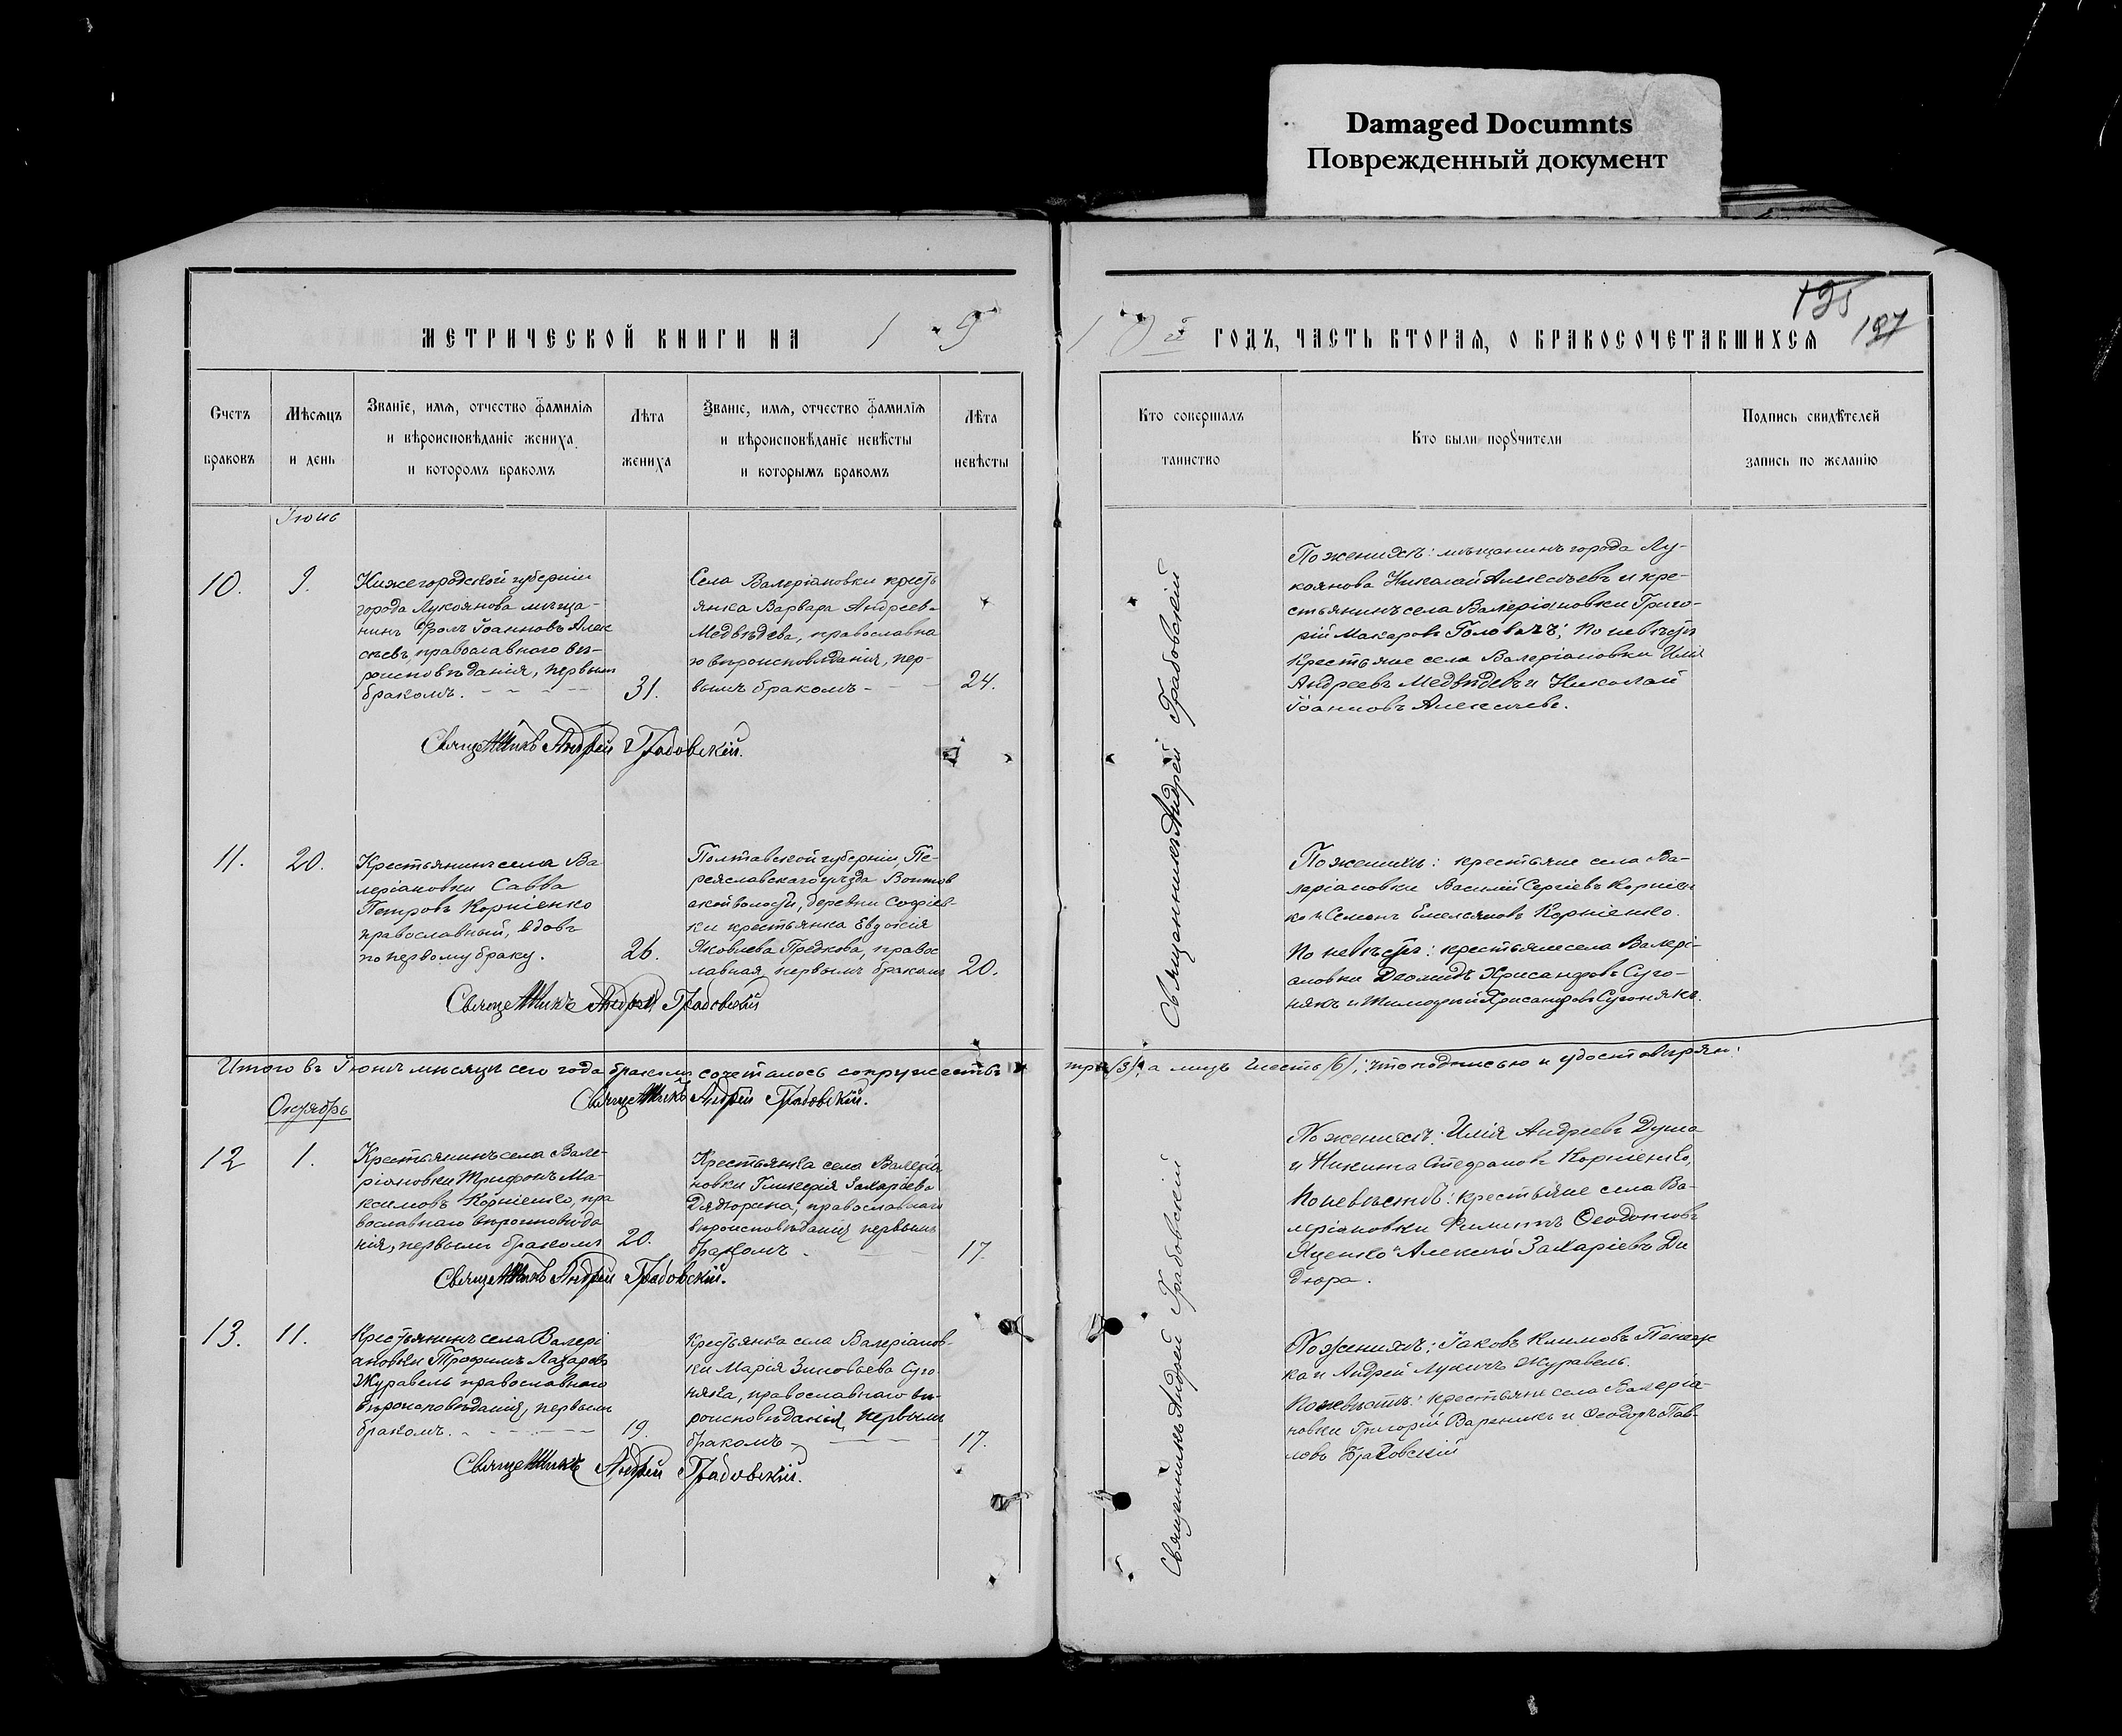 Damaged Documnts
Поврежденный документ
МЕТРИЧЕСКОЙ КНИГИ НА 1 9
ГОДЪ, ЧАСТЬ ВТОРАЯ, О БРАКОСОЧЕТАВШИХСЯ
195
197
Счетъ
браковъ
Мѣсяцъ
и день
Званіе, имя, отчество фамилія
и вѣроисповѣданіе жениха
и которомъ бракомъ
Лѣта
жениха
Званіе, имя, отчество фамилія
и вѣроисповѣданіе невѣсты
и которымъ бракомъ
Лѣта
невѣсты
Кто совершалъ
таинство
Кто были поручители
Подпись свидѣтелей
запись по желанію
Іюнь
10.
9.
Нижегородской губерніи
города Лукоянова мѣща-
нинъ Фролъ Іоанновъ Алек
сѣевъ, православнаго вѣ-
роисповѣданія, первымъ
бракомъ.
31.
Села Валеріановки кресть
янка Варвара Андреева
Медвѣдева, православна
го вѣроисповѣданія, пер-
вымъ бракомъ -
24.
Священникъ Андрей Грабовскій.
Священникъ Андрей Грабовскій
По женихѣ: мѣщанинъ города Лу-
коянова Николай Алексѣевъ и кре-
стьянинъ села Валеріановки Григо-
рій Макаровъ Головачъ; по невѣстѣ
Крестьяне села Валеріановки Илія
Андреевъ Медвѣдевъ и Николай
Іоанновъ Алексѣевъ.
11.
20.
Крестьянинъ села Ва
леріановки Савва
Петровъ Корніенко
православный, вдовъ
по первому браку.
26.
Полтавской губерніи, Пе-
реяславскаго уѣзда Войтов
ской волости, деревни Софіев-
ки крестьянка Евдокія
Яковлева Предкова, правос
лавная, первымъ бракомъ
20.
Священникъ Андрей Грабовскій
По женихѣ: крестьяне села Ва-
леріановки Василій Сергіевъ Корніен
ко и Семенъ Емельяновъ Корніенко.
По невѣстѣ: крестьяне села Валері-
ановки Діомидъ Хрисанфовъ Суго-
някъ и Тимофей Хрисанфовъ Сугонякъ.
Итого въ Іюнѣ мѣсяцѣ сего года бракомъ сочеталось супружествъ
три (3), а лицъ шесть (6); что подписью и удостовѣряю:
Священникъ Андрей Грабовскій.
Октябрь
12
1.
Крестьянинъ села Вале-
ріановки Трифонъ Ма-
ксимовъ Корніенко, пра
вославнаго вѣроисповѣда
нія, первымъ бракомъ
20.
Крестьянка села Валеріа
новки Гликерія Захаріева
Дидюрина, православнаго
вѣроисповѣданія первымъ
бракомъ.
17
Священникъ Андрей Грабовскій.
Священникъ Андрей Грабовскій
По женихѣ: Илія Андреевъ Дума
и Никита Стефановъ Корніенко,
По невѣстѣ: крестьяне села Ва-
леріановки Филиппъ Ѳеодотовъ
Яценко и Алексій Захаріевъ Ди
дюра.
13.
11.
Крестьянинъ села Валері
ановки Трофимъ Лазаревъ
Журавель православнаго
вѣроисповѣданія, первымъ
бракомъ.
19.
Крестьянка села Валеріанов-
ки Марія Зиновьева Суго
няка, православнаго вѣ-
роисповѣданія, первымъ
бракомъ,
17.
Священникъ Андрей Грабовскій.
По женихѣ: Іаковъ Климовъ
ка и Андрей Лукичъ Журавель.
По невѣстѣ: крестьяне села Валеріа-
новки Григорій Вареникъ и Ѳеодоръ Пав-
ловъ